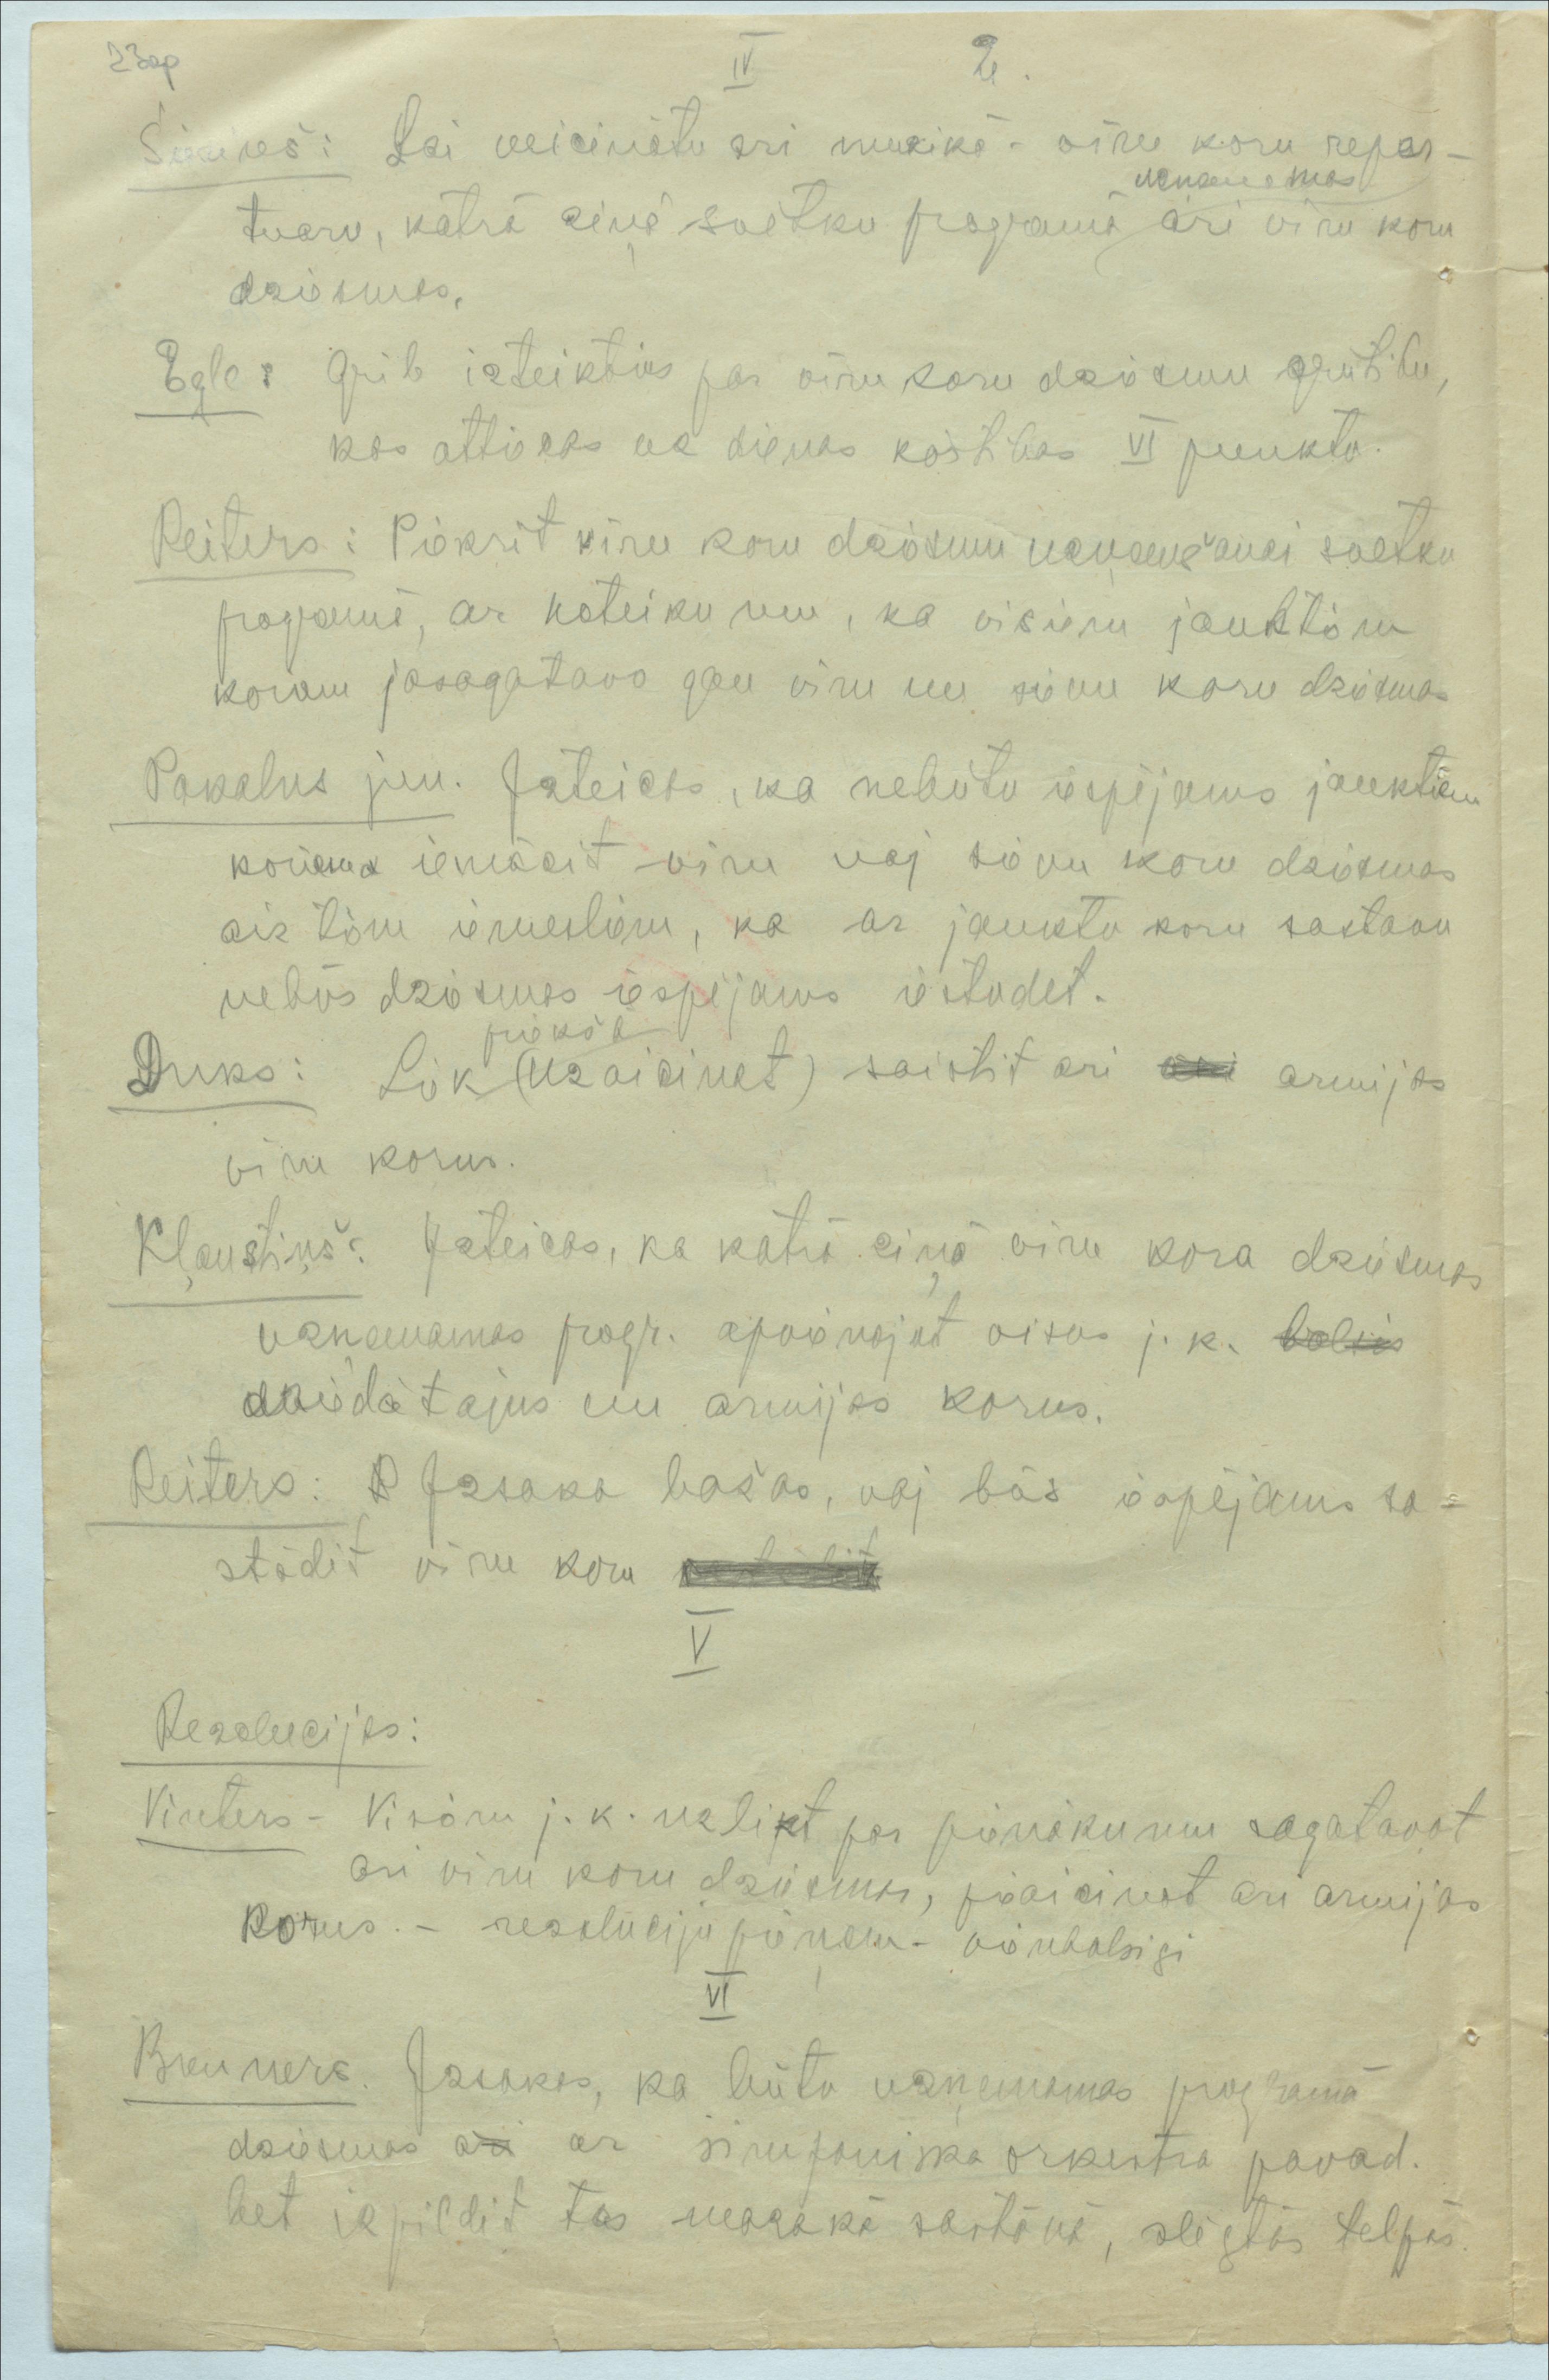 23op IV 2.
Lai veicinātu ari muzikā - vīru koru reper-
uzņemamas
tuaru, katrā ziņā svētku programā ari vīru koru
dziesmas.
Egle: Grib izteikties par vīru koru dziesmu grūtību,
kas attiecas uz dienas kārtības VI punktu.
Reiters: Piekrīt vīru koru dziesmu uzņemšanai svētku
programā, ar noteikumu, ka visiem jauktiem
koriem jāsagatavo gan vīru un sievu koru dziesmas
Pakalns jun. Izteicas, ka nebūtu iespējams jauktiem
koriem iemācīt vīru vaj sievu koru dziesmas
aiz tiem iemesliem, ka ar jauktu koru sastavu
nebūs dziesmas iespējams iestudēt.
priekšā
Druks: Liek (uzaicinet) saistīt ari ari armijas
vīru korus.
Kļaustiņš: Izteicas, ka katrā ziņā vīru kora dziesmas
uzņemamas progr. apvienojot visus j. k. balsis
dziedātajus un armijas korus.
Reiters: Izsaka bažas, vaj būs iespējams sa-
stādīt vīru koru
V
Rezolucijas:
Vinters - Visiem j. k. uzlikt par pienākumu sagatavot
ari vīru koru dziesmas, pieaicinot ari armijas
korus. - rezolūciju pieņem - vienbalsīgi
VI
Brenners. Izsakas, ka būtu uzņemamas programā
dziesmas ari ar simfoniska orkestra pavad.
bet izpildīt tas mazākā sastāvā, slēgtās telpās.